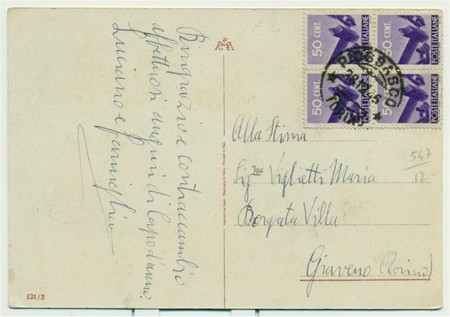 Ringrazio e contraccambio
affettuosi auguri di Capodanno
Luciano e famiglia
50 CENT.
POSTE ITALIANE
50 CENT.
POSTE ITALIANE
50 CENT.
POSTE ITALIANE
50 CENT.
POSTE ITALIANE
PIOSSASCO
TORINO
Alla Stima
Sig.na Viglietti Maria
Borgata Villa
Giaveno (Torino)
547
12-
131/3